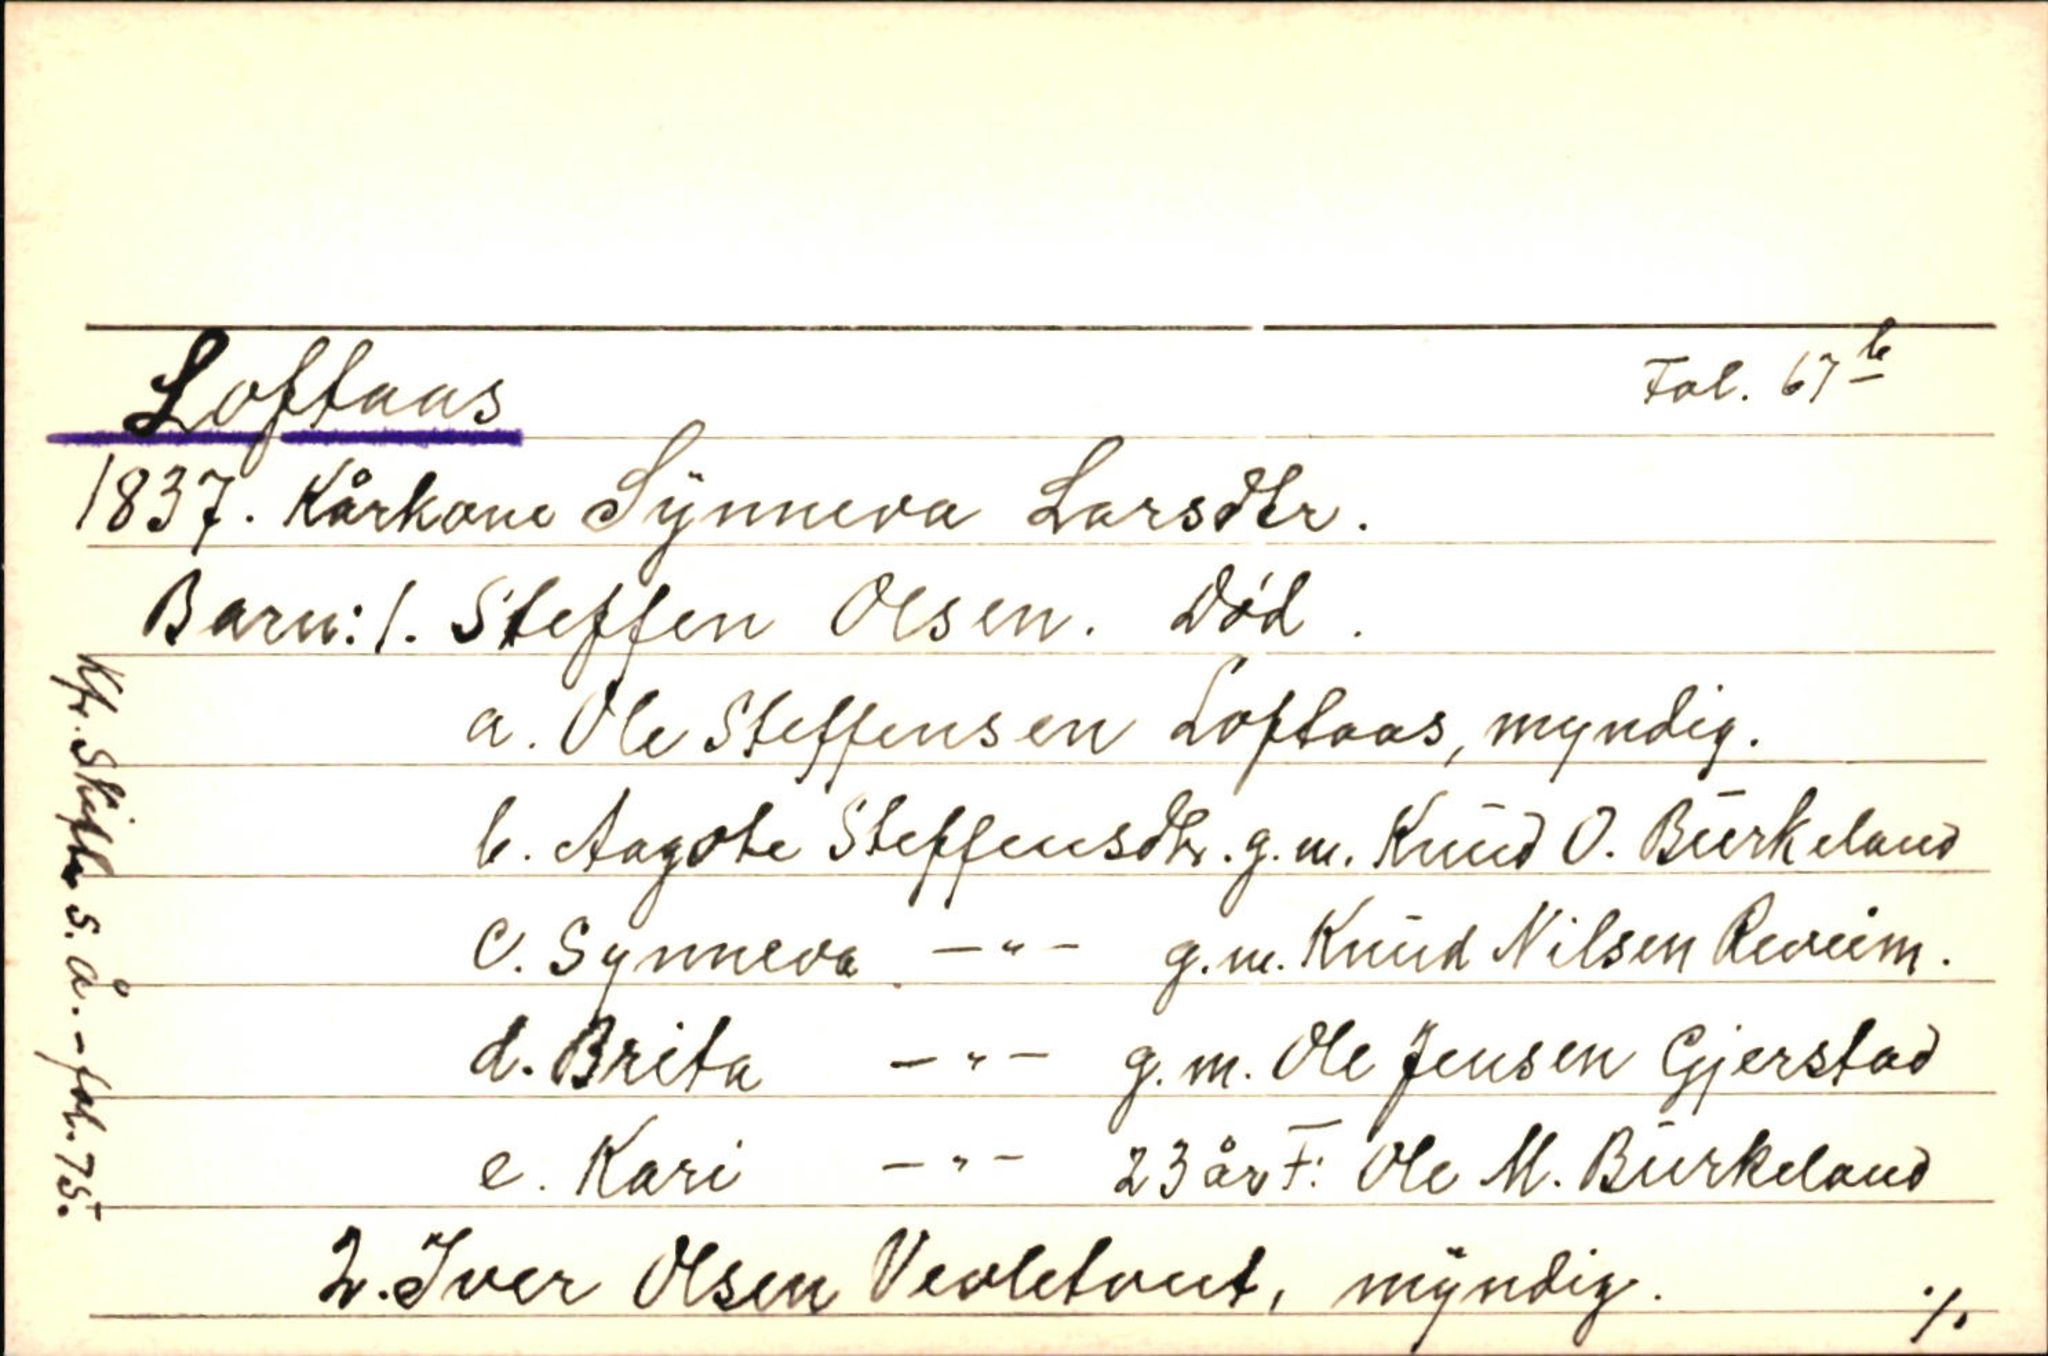 Loftaas Fol. 67b
1837. Kårkone Synneva Larsdtr.
Barn: 1. Steffen Olsen. Død.
a. Ole Steffensen Loftaas, myndig.
b. Aagote Steffensdtr. g.m. Knud O. Burkeland
c. Synneva —"— g.m. Knud Nilsen Reveim.
d. Brita —"— g.m. Ole Jensen Gjerstad
e. Kari —"— 23 år F: Ole M. Burkeland
2. Iver Olsen Vevletveit, myndig.
./.
Kfr. Skifte s.å. - fol. 75.